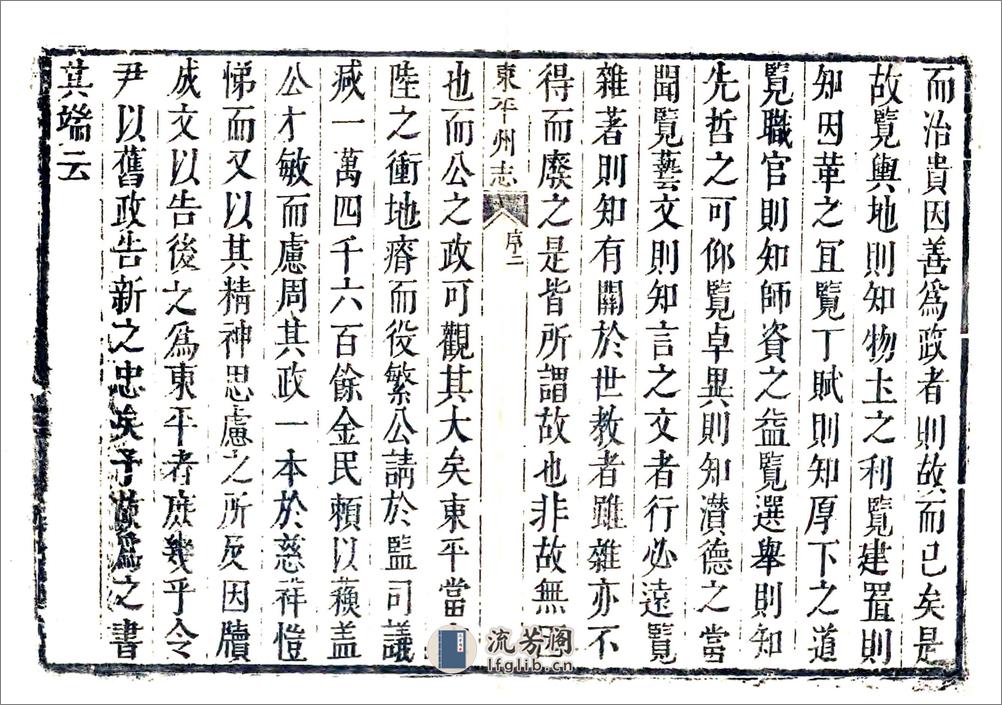 而治貴因善爲政者則故而已矣是
故覽輿地則知物土之利覽建置則
知因革之宜覽丁賦則知厚下之道
覽職官則知師資之益覽選舉則知
先哲之可仰覽卓異則知潛德之當
聞覽藝文則知言之文者行必遠覽
雜著則知有關於世教者雖雜亦不
得而廢之是皆所謂故也非故無
東平州志
序二
也而公之政可觀其大矣東平當
陸之衝地瘠而役繁公請於監司議
减一萬四千六百餘金民賴以蘓盖
公才敏而慮周其政一本於慈祥愷
悌而又以其精神思慮之所及因牘
成文以告後之爲東平者庶幾乎令
尹以舊政告新之忠矣予 爲之書
其端云
流芳阁
lfglib.cn